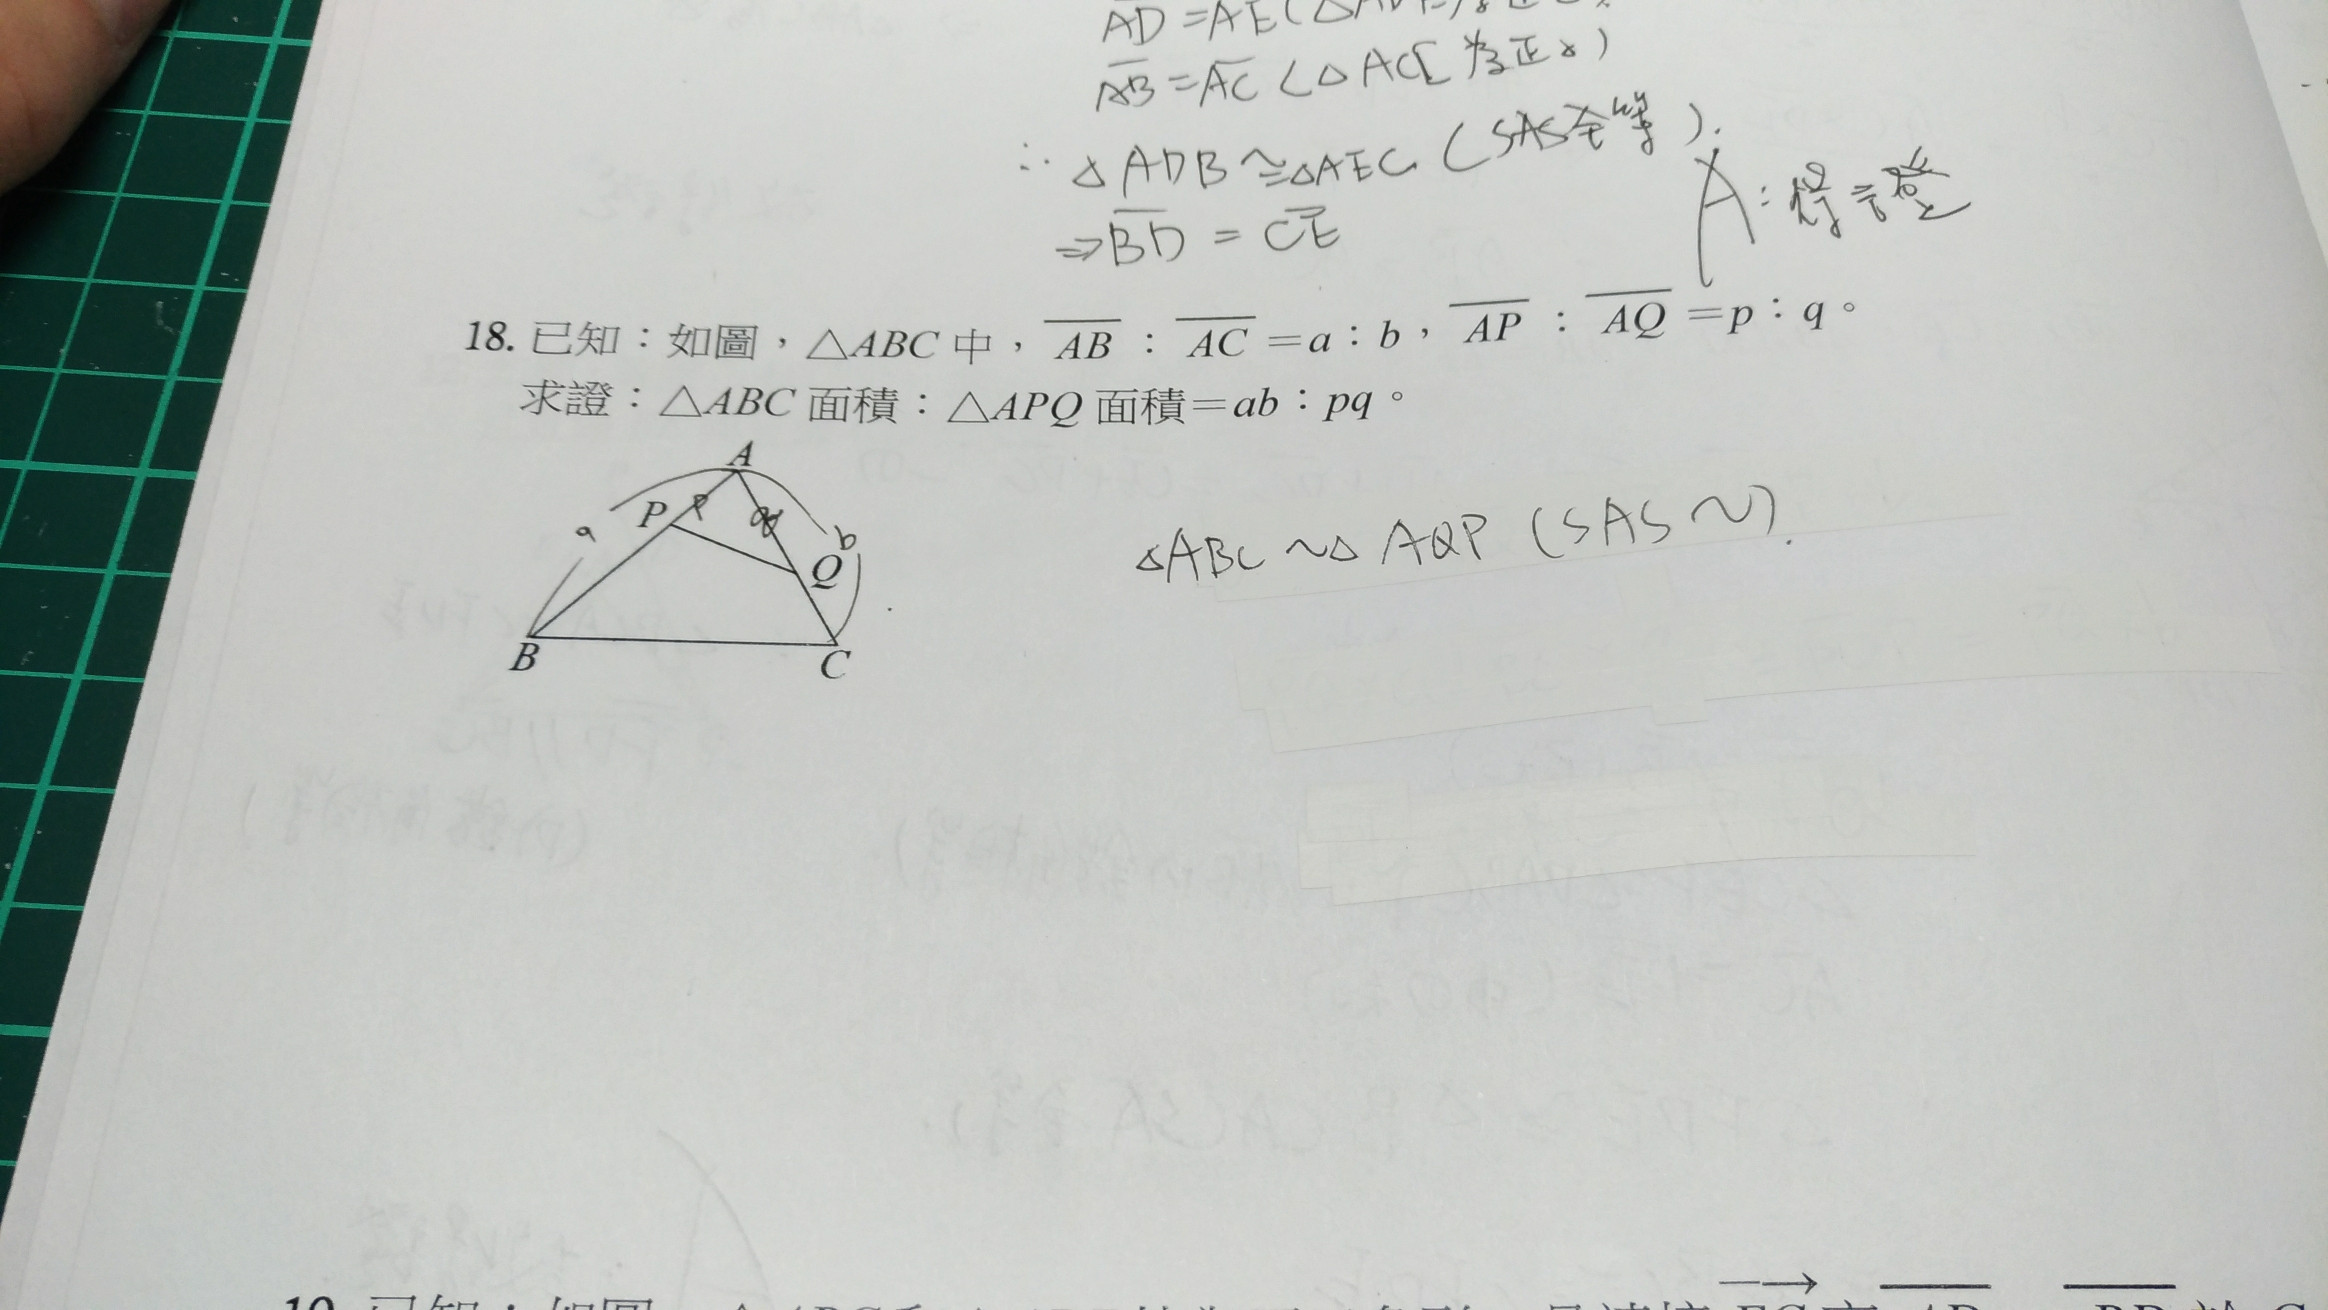 AD = AE (△AD
AB = AC (△AC 為正△)
∴ △ADB ≅ △AEC (SAS全等).
⇒ BD = CE
A: 得證
18. 已知：如圖，△ABC 中，AB：AC＝a：b，AP：AQ＝p：q。
求證：△ABC 面積：△APQ 面積＝ab：pq。
A
P p q
a b
Q
B C
△ABC ~ △AQP (SAS ~).